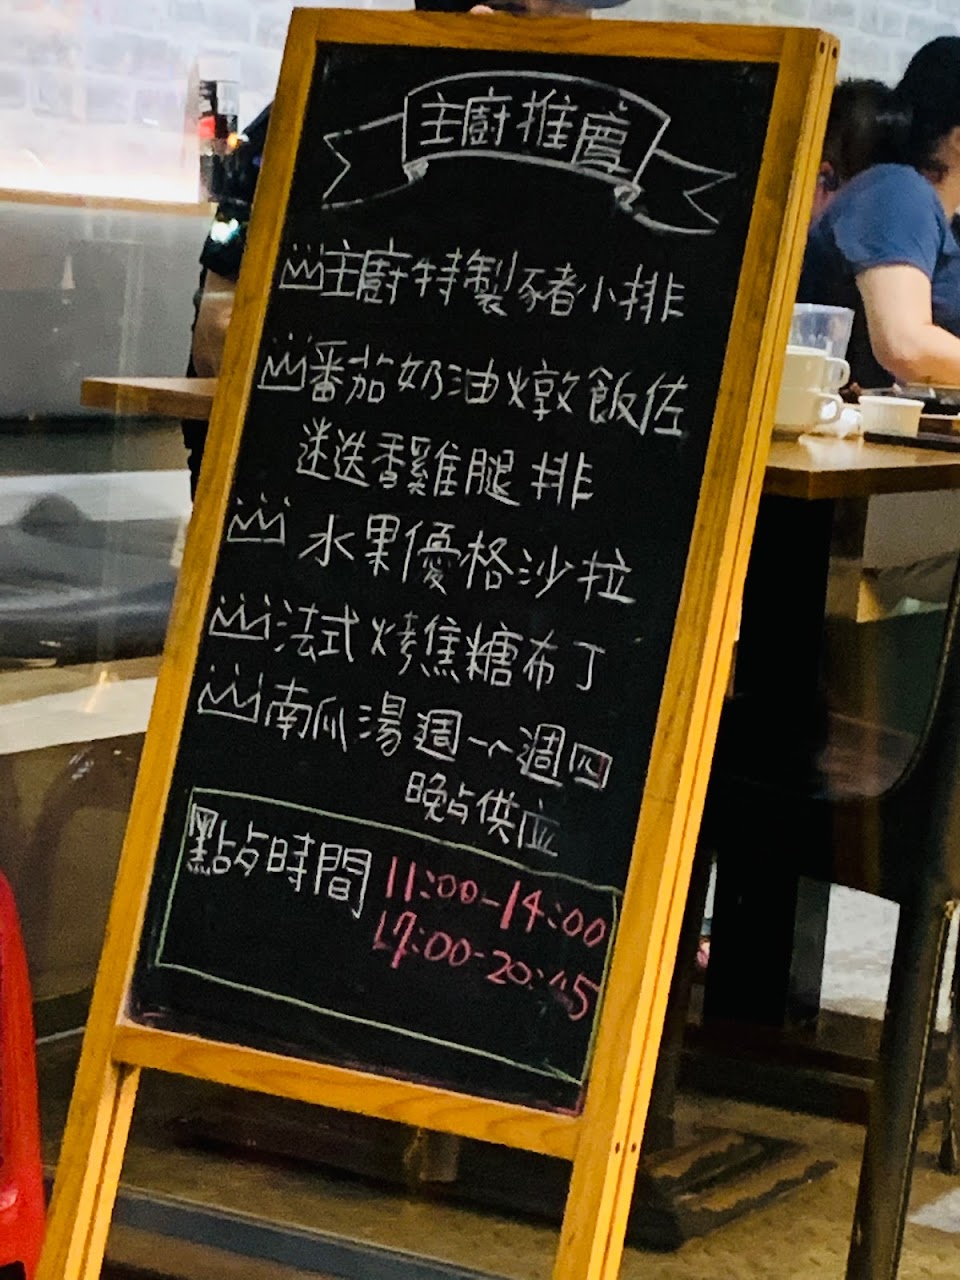 主廚推薦
主廚特製豬小排
番茄奶油燉飯佐
迷迭香雞腿排
水果優格沙拉
法式烤焦糖布丁
南瓜湯週一~週四
晚上供应
點餐時間 11:00-14:00
17:00-20:45